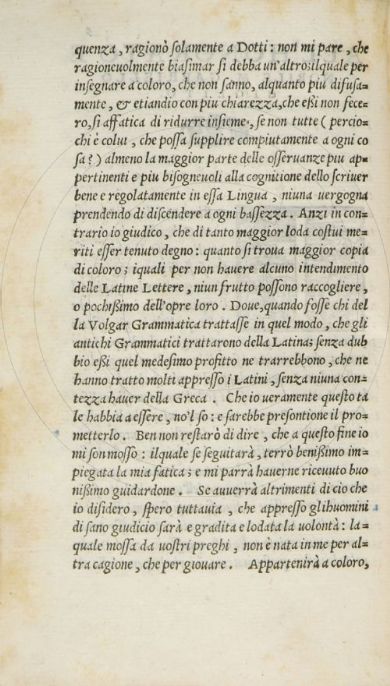 quenza, ragionò ſolamente a Dotti: non mi pare, che
ragioneuolmente biaſimar ſi debba un'altro: ilquale per
inſegnare a coloro, che non ſanno, alquanto piu difuſa-
mente, & etiandio con piu chiarezza, che eßi non fece-
ro, ſi affatica di ridurre inſieme, ſe non tutte (percio-
chi è colui, che poſſa ſupplire compiutamente a ogni co
ſa?) almeno la maggior parte delle oſſeruanze piu ap-
pertinenti e piu biſogneuoli alla cognitione dello ſcriuer
bene e regolatamente in eſſa Lingua, niuna uergogna
prendendo di diſcendere a ogni baſſezza. Anzi in con-
trario io giudico, che di tanto maggior loda coſtui me-
riti eſſer tenuto degno: quanto ſi troua maggior copia
di coloro; iquali per non hauere alcuno intendimento
delle Latine Lettere, niun frutto poſſono raccogliere,
o pochißimo dell'opre loro. Doue, quando foſſe chi del
la Volgar Grammatica trattaſſe in quel modo, che gli
antichi Grammatici trattarono della Latina; ſenza dub
bio eßi quel medeſimo profitto ne trarrebbono, che ne
hanno tratto molti appreſſo i Latini, ſenza niuna con-
tezza hauer della Greca. Che io ueramente queſto ta
le habbia a eſſere, no'l ſo: e ſarebbe preſontione il pro-
metterlo. Ben non reſtarò di dire, che a queſto fine io
mi ſon moſſo: ilquale ſe ſeguitarà, terrò benißimo im-
piegata la mia fatica; e mi parrà hauerne riceuuto buo
nißimo guidardone. Se auuerrà altrimenti di cio che
io diſidero, ſpero tuttauia, che appreſſo gli huomini
di ſano giudicio ſarà e gradita e lodata la uolontà: la-
quale moſſa da uoſtri preghi, non è nata in me per al-
tra cagione, che per giouare. Appartenirà a coloro,